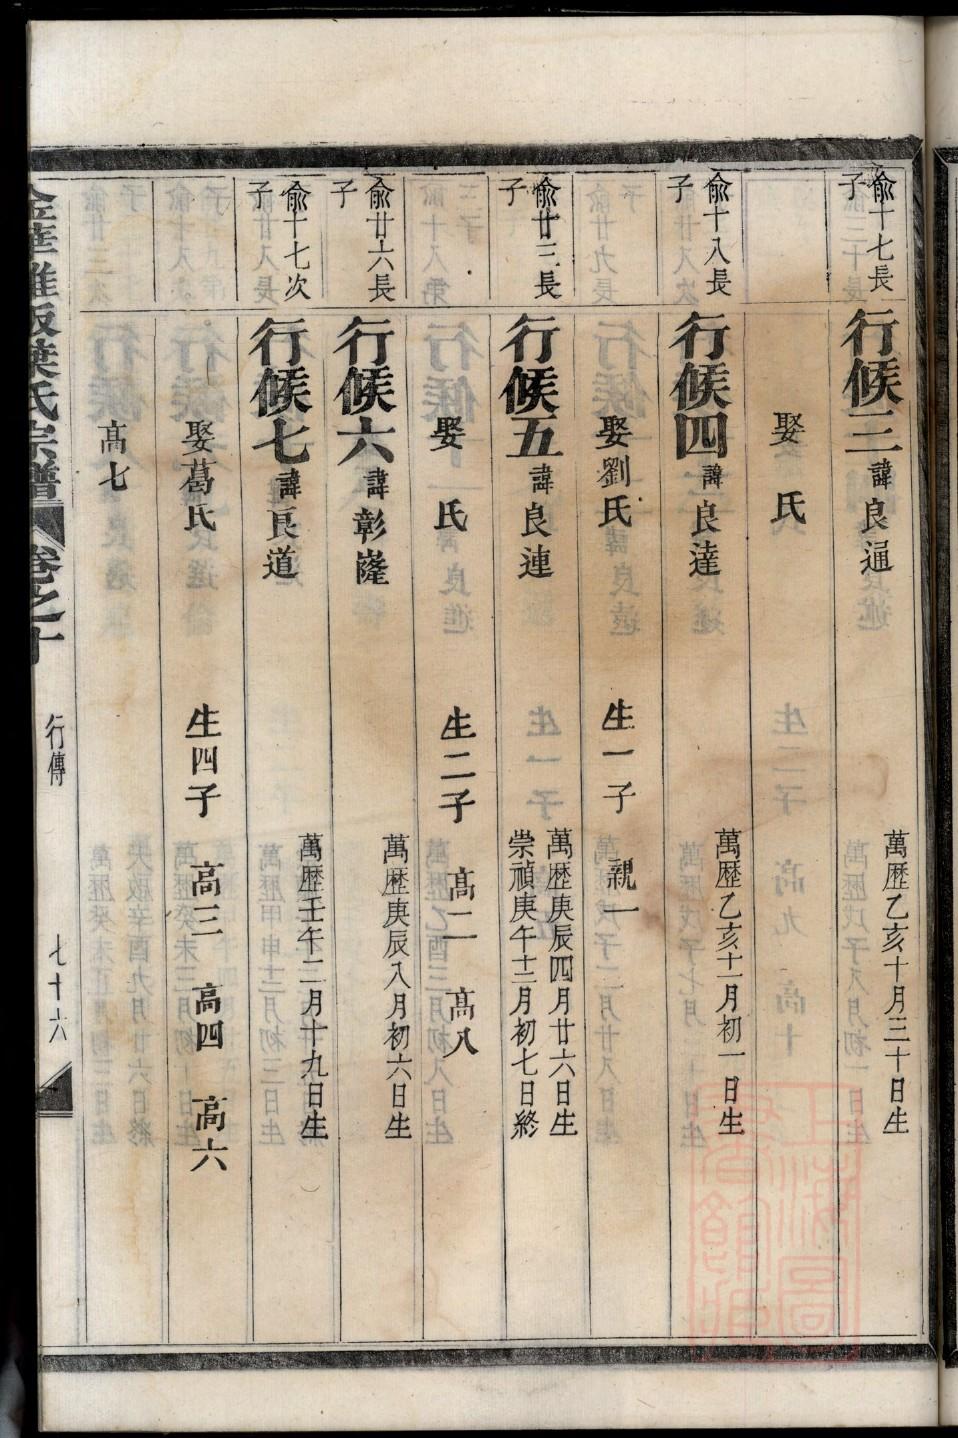 俞十七長子
行候三 諱良通 萬歷乙亥十月三十日生
娶 氏
俞十八長子
行候四 諱良達 萬歷乙亥十一月初一日生
娶劉氏 生一子 親一
俞廿三長子
行候五 諱良連 萬歷庚辰四月廿六日生
崇禎庚午十二月初七日終
娶 氏 生二子 高二 高八
俞廿六長子
行候六 諱彰嶐 萬歷庚辰八月初六日生
俞十七次子
行候七 諱良道 萬歷壬午二月十九日生
娶葛氏 生四子 高三 高四 高六
高七
金華雅坂葉氏宗譜 卷之十 行傳 七十六
上海圖書館藏